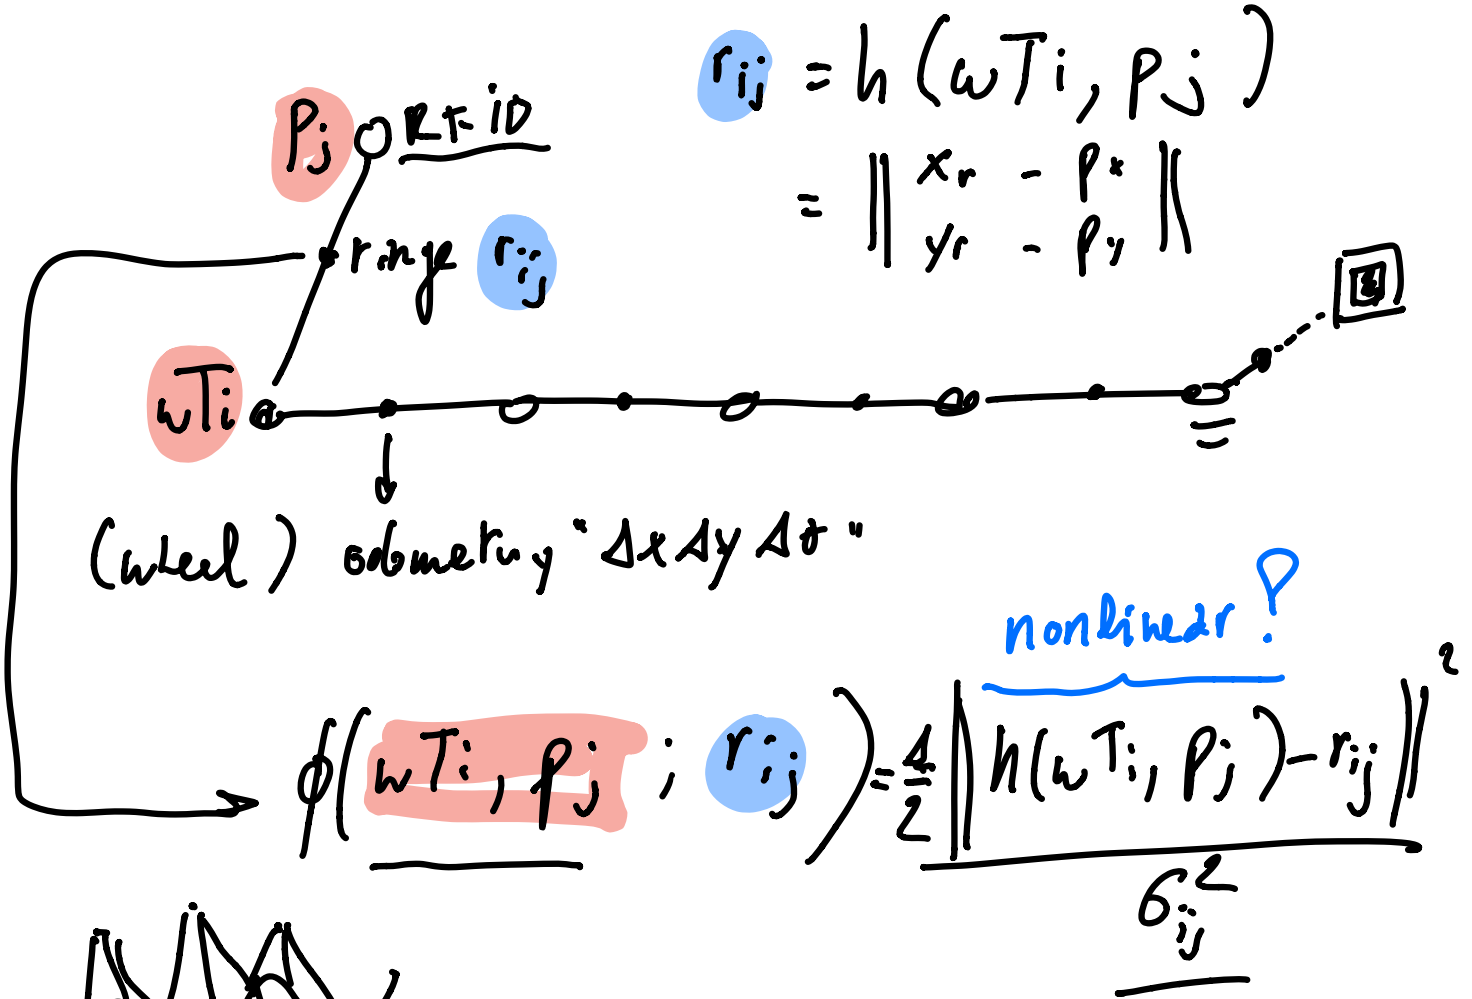 rij = h(wTi, pj)
= || xr - px ||
yr - py
Pj RFiD
range rij
wTi
(wheel) odometry "Δx Δy Δθ"
nonlinear?
ϕ(wTi, pj ; rij) = 1/2 || h(wTi, pj) - rij ||²
σij²